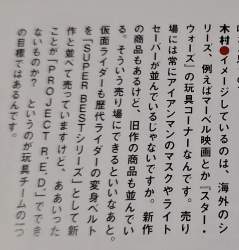 木村●イメージしているのは、海外のシ
リーズ、例えばマーベル映画とか『スター・
ウォーズ』の玩具コーナーなんです。売り
場には常にアイアンマンのマスクやライト
セーバーが並んでいるじゃないですか。新作
の商品もあるけど、旧作の商品も並んでい
る。そういう売り場にできるといいなあと。
仮面ライダーも歴代ライダーの変身ベルト
を「SUPER BESTシリーズ」として新
作と並べて売っていますけど、ああいった
ことが「PROJECT R.E.D.」でもでき
ないものか? というのが玩具チームの一つ
の目標ではあるんです。